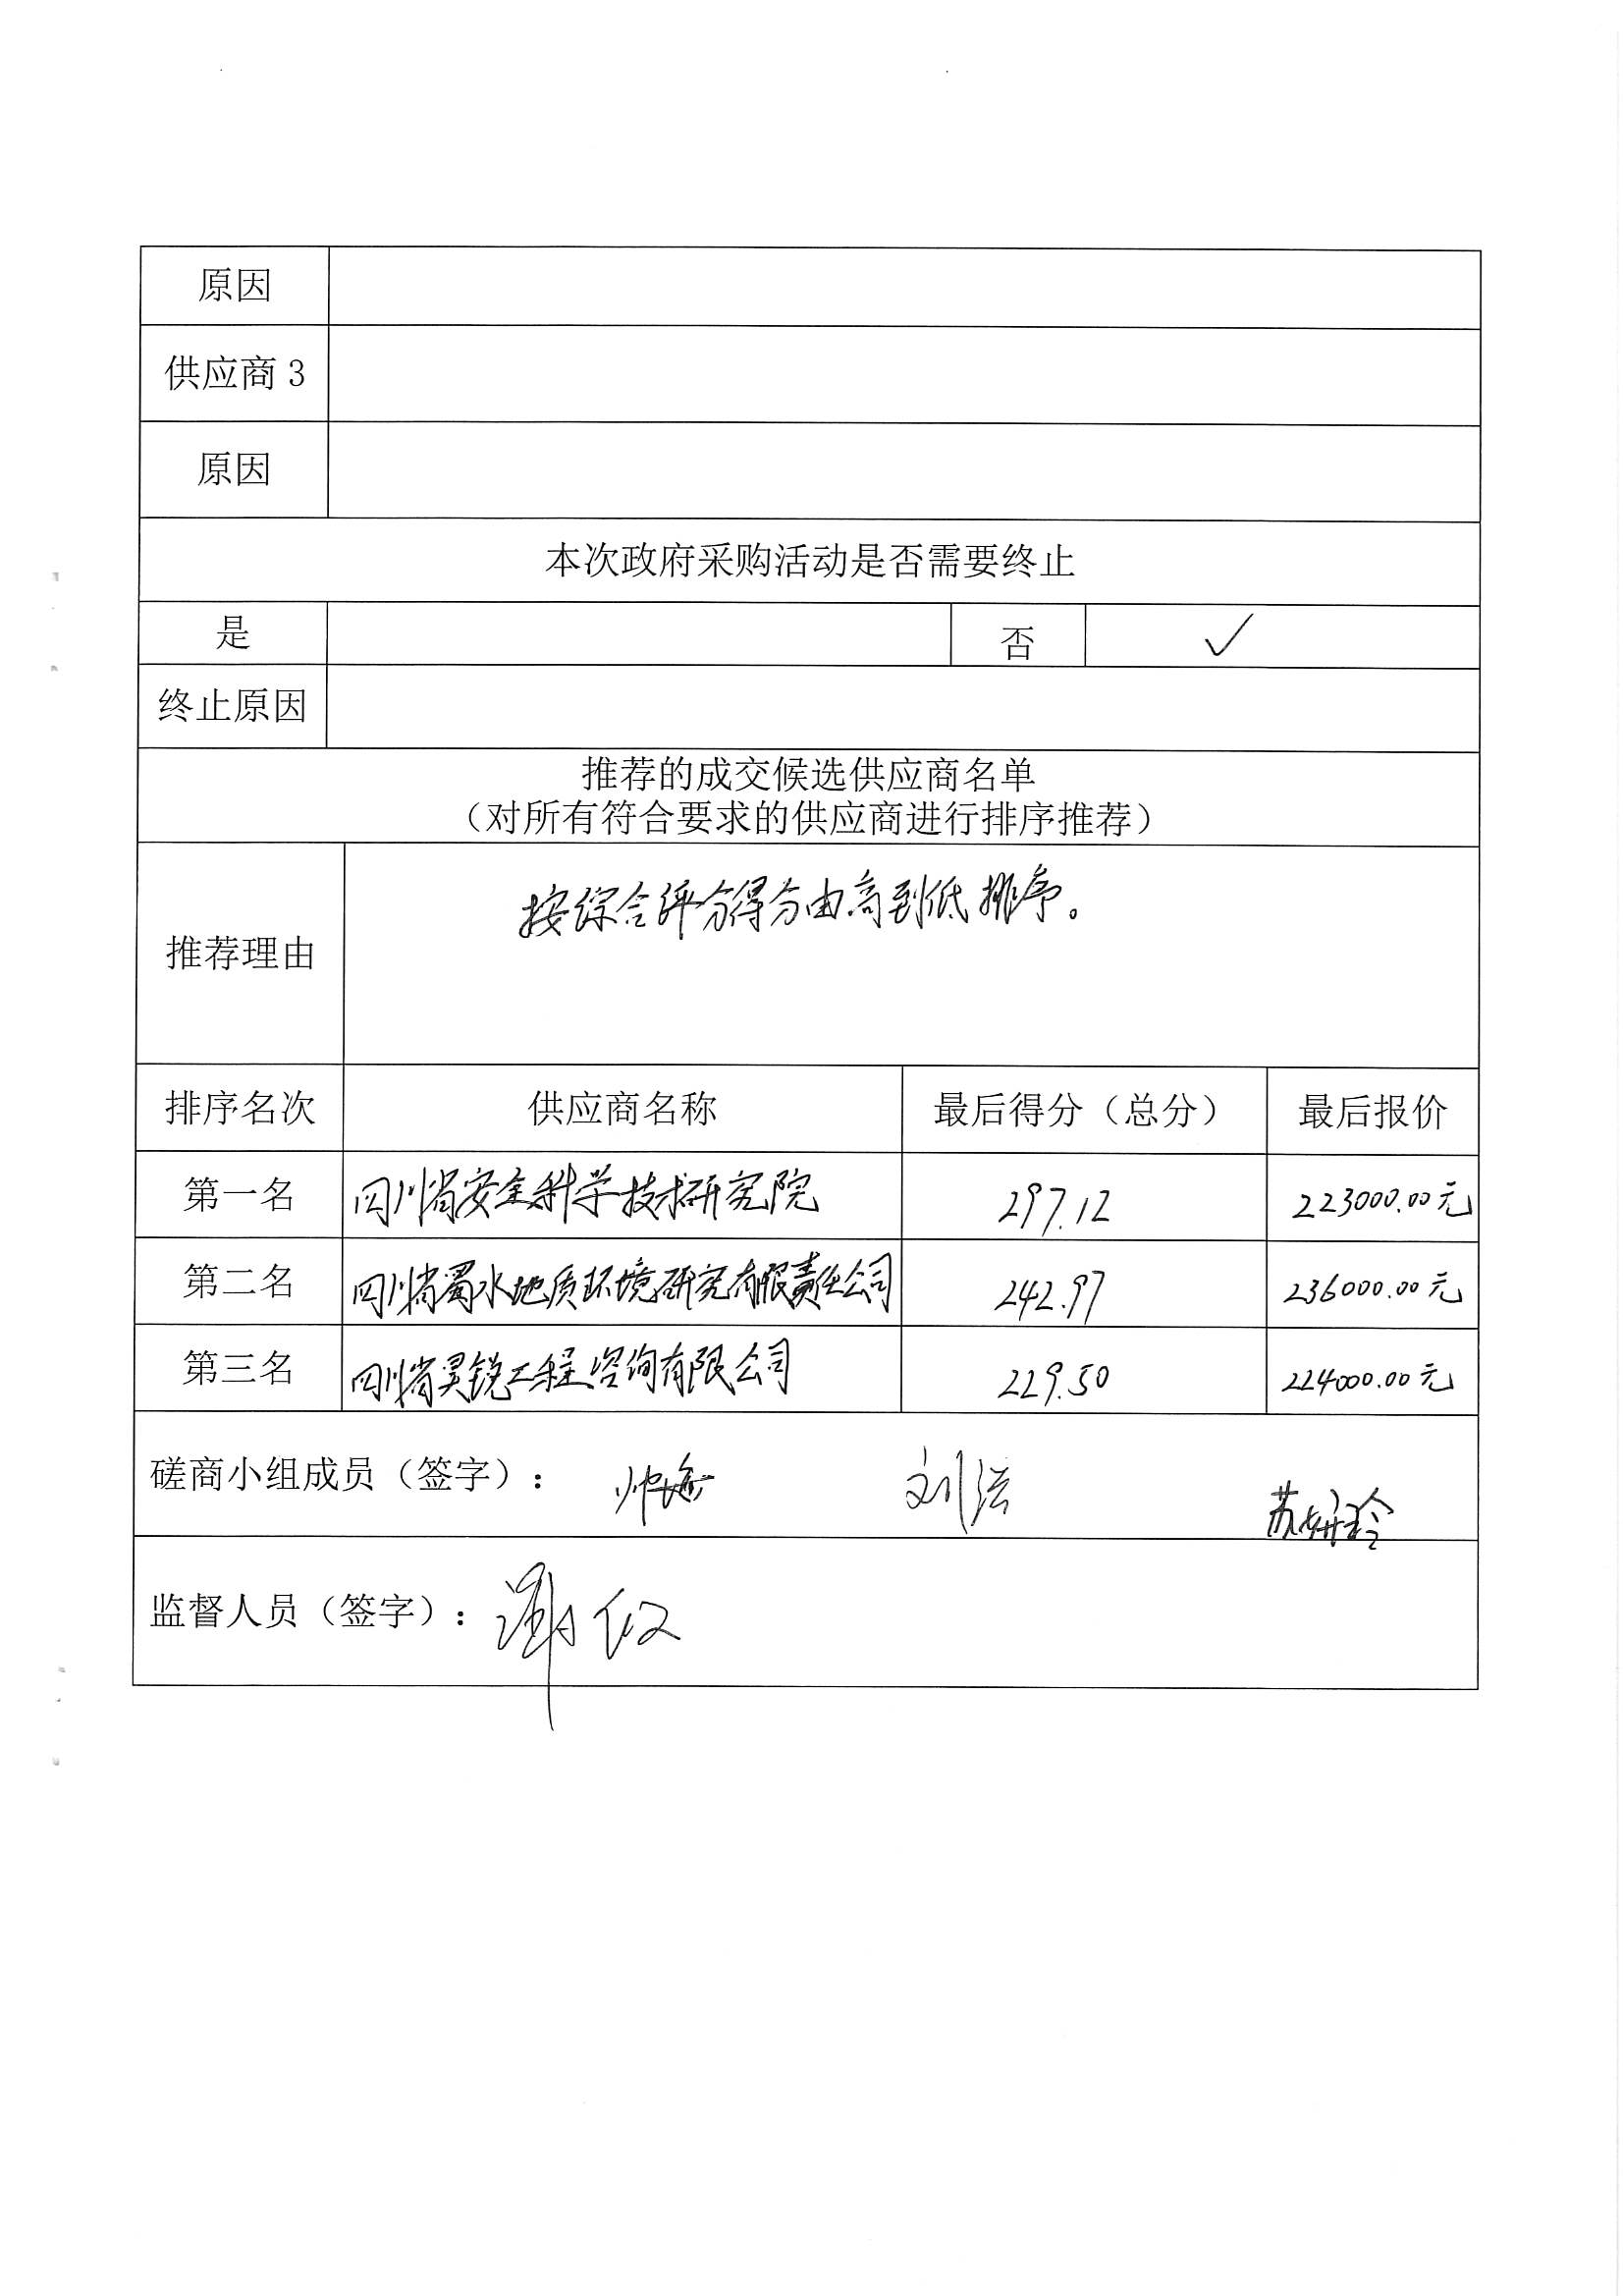 原因
供应商 3
原因
本次政府采购活动是否需要终止
是 否 ✓
终止原因
推荐的成交候选供应商名单
（对所有符合要求的供应商进行排序推荐）
推荐理由 按综合评分得分由高到低排序。
排序名次 供应商名称 最后得分（总分） 最后报价
第一名 四川省安全科学技术研究院 297.12 223000.00元
第二名 四川省蜀水地质环境研究有限责任公司 242.97 236000.00元
第三名 四川省昊锐工程咨询有限公司 229.50 224000.00元
磋商小组成员（签字）： 刘洪 苏妍玲
监督人员（签字）：